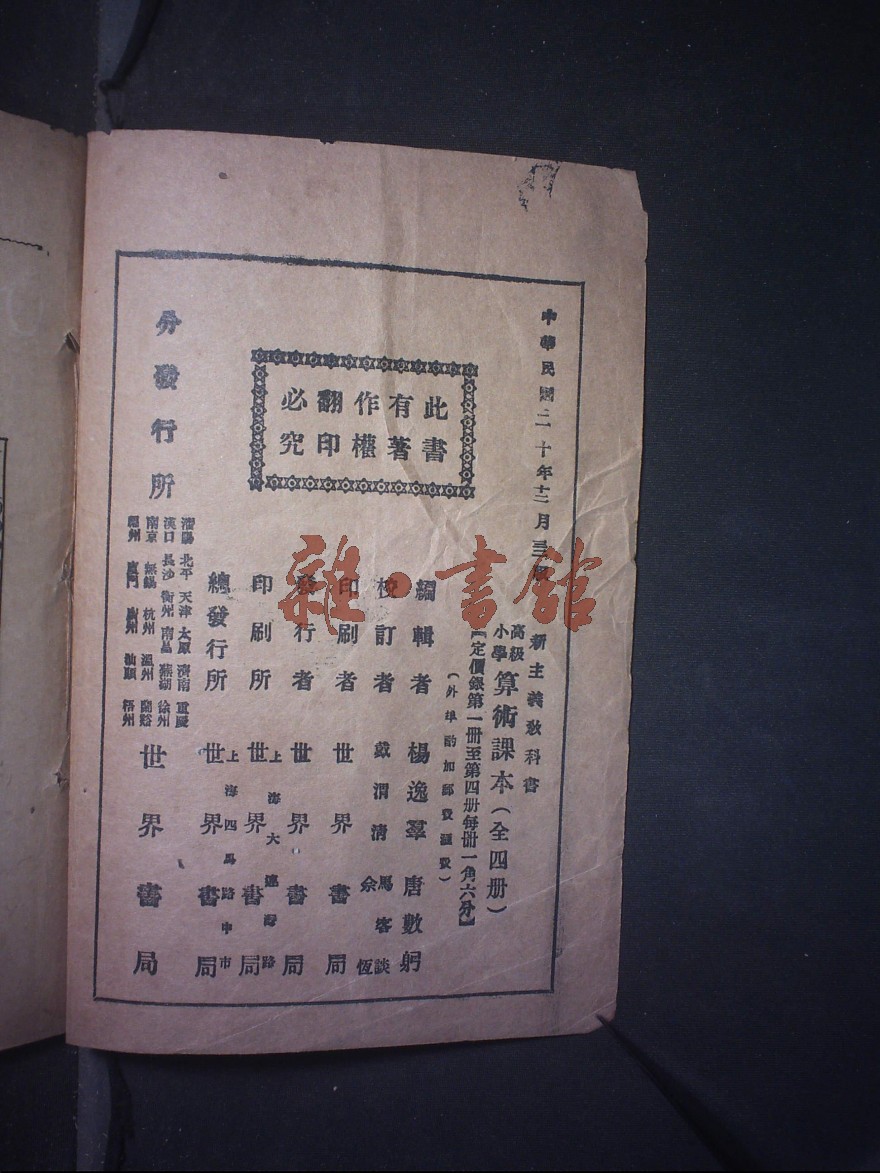 中華民國二十年十二月三版
新主義教科書
高級小學 算術課本（全四册）
【定價銀第一册至第四册每册一角六分】
（外埠酌加郵費滙費）
此書
有著
作權
翻印
必究
編輯者 楊逸羣 唐數躬
校訂者 戴渭清 馬客談 余恆
印刷者 世界書局
發行者 世界書局
印刷所 上海大連灣路 世界書局
總發行所 上海四馬路中市 世界書局
分發行所
瀋陽 北平 天津 太原 濟南 重慶
漢口 長沙 衡州 南昌 蕪湖 徐州
南京 無錫 杭州 溫州 蘭谿
福州 廈門 廣州 汕頭 梧州
世界書局
雜·書館